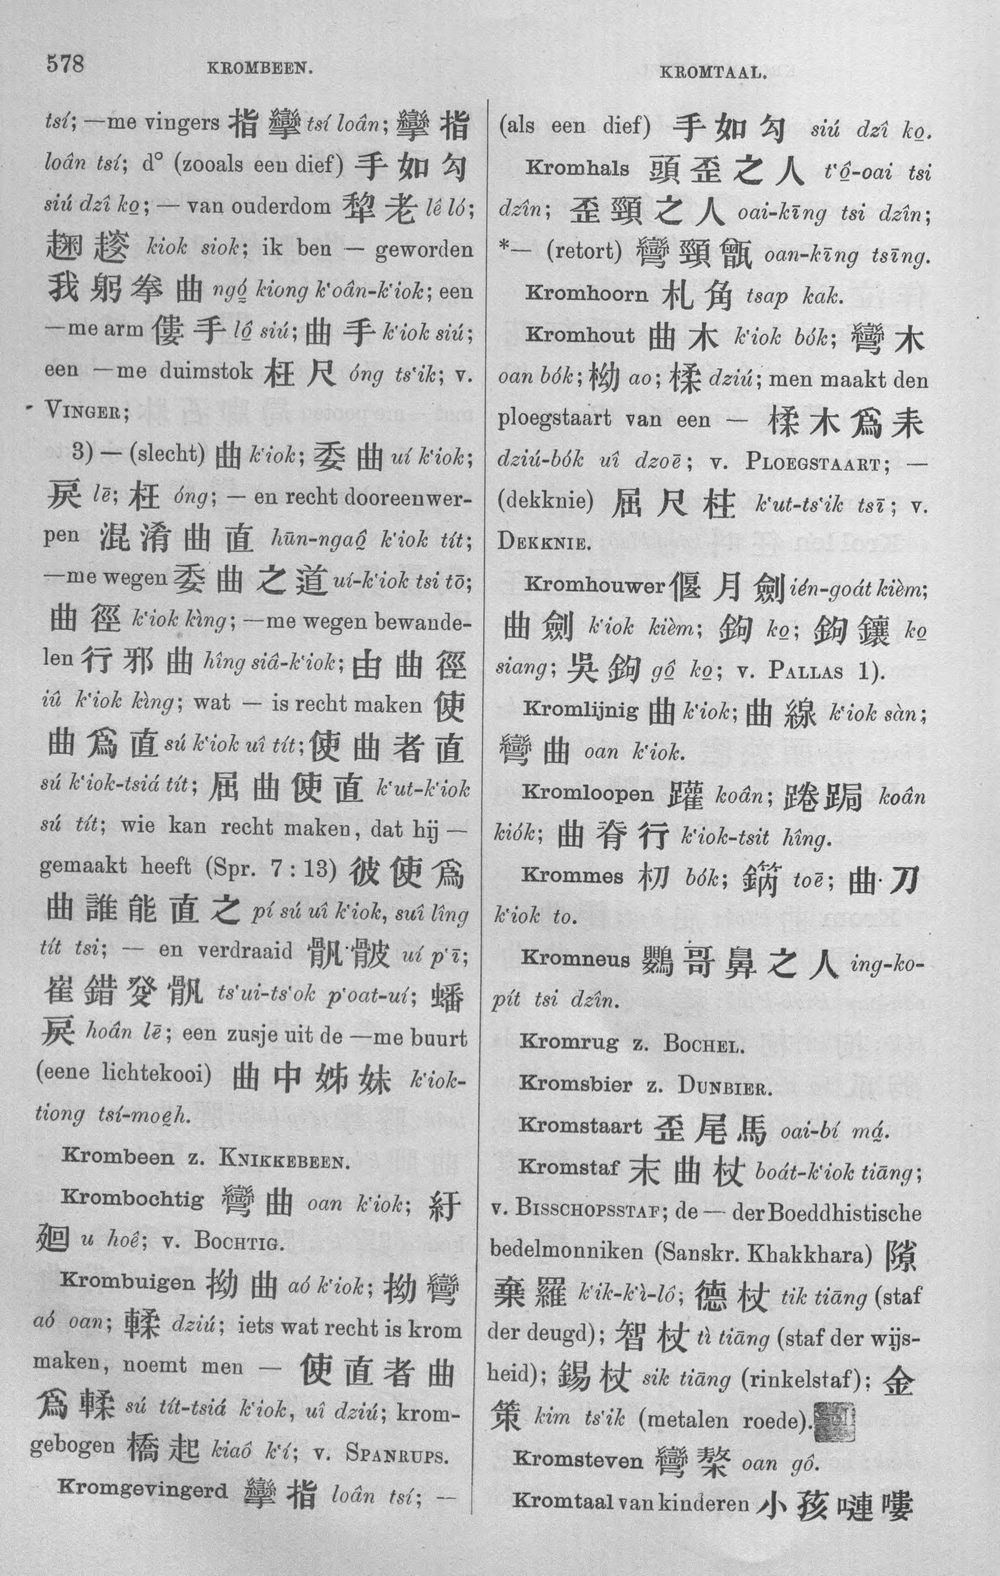 578
KROMBEEN.
KROMTAAL.
tsí; —me vingers 指攣 tsí loân; 攣指
loân tsí; d° (zooals een dief) 手如勾
siú dzî ko̱; — van ouderdom 犂老 lê ló;
kiok siok; ik ben — geworden
我躬拳曲 ngó̱ kiong k‘oân-k‘iok; een
—me arm 僂手 lô̱ siú; 曲手 k‘iok siú;
een —me duimstok 枉尺 óng ts‘ik; v.
VINGER;
3) — (slecht) 曲 k‘iok; 委曲 uí k‘iok;
戾 lē; 枉 óng; — en recht dooreenwer-
pen 混淆曲直 hūn-ngaô̱ k‘iok tít;
—me wegen 委曲之道 uí-k‘iok tsi tō;
曲徑 k‘iok kìng; —me wegen bewande-
len 行邪曲 hîng siâ-k‘iok; 由曲徑
iû k‘iok kìng; wat — is recht maken 使
曲爲直 sú k‘iok uî tít; 使曲者直
sú k‘iok-tsiá tít; 屈曲使直 k‘ut-k‘iok
sú tít; wie kan recht maken, dat hij —
gemaakt heeft (Spr. 7 : 13) 彼使爲
曲誰能直之 pí sú uî k‘iok, suî lîng
tít tsi; — en verdraaid 骪骳 uí p‘ī;
崔錯癹骪 ts‘ui-ts‘ok p‘oat-uí; 蟠
戾 hoân lē; een zusje uit de —me buurt
(eene lichtekooi) 曲中姊妹 k‘iok-
tiong tsí-moe̱h.
Krombeen z. KNIKKEBEEN.
Krombochtig 彎曲 oan k‘iok; 紆
廻 u hoê; v. BOCHTIG.
Krombuigen 拗曲 aó k‘iok; 拗彎
aó oan; 輮 dziú; iets wat recht is krom
maken, noemt men — 使直者曲
爲輮 sú tít-tsiá k‘iok, uî dziú; krom-
gebogen 橋起 kiaó k‘í; v. SPANRUPS.
Kromgevingerd 攣指 loân tsí; —
(als een dief) 手如勾 siú dzî ko̱.
Kromhals 頭歪之人 t‘ô̱-oai tsi
dzîn; 歪頸之人 oai-kīng tsi dzîn;
*— (retort) 彎頸甑 oan-kīng tsīng.
Kromhoorn 札角 tsap kak.
Kromhout 曲木 k‘iok bók; 彎木
oan bók; 柪 ao; 楺 dziú; men maakt den
ploegstaart van een — 楺木爲耒
dziú-bók uî dzoē; v. PLOEGSTAART; —
(dekknie) 屈尺柱 k‘ut-ts‘ik tsī; v.
DEKKNIE.
Kromhouwer 偃月劍 ién-goát kièm;
曲劍 k‘iok kièm; 鉤 ko̱; 鉤鑲 ko̱
siang; 吳鉤 gô̱ ko̱; v. PALLAS 1).
Kromlijnig 曲 k‘iok; 曲線 k‘iok sàn;
彎曲 oan k‘iok.
Kromloopen 躍 koân; 踡跼 koân
kiók; 曲脊行 k‘iok-tsit hîng.
Krommes bók; toē; 曲刀
k‘iok to.
Kromneus 鸚哥鼻之人 ing-ko-
pít tsi dzîn.
Kromrug z. BOCHEL.
Kromsbier z. DUNBIER.
Kromstaart 歪尾馬 oai-bí má̱.
Kromstaf 末曲杖 boát-k‘iok tiāng;
v. BISSCHOPSSTAF; de — der Boeddhistische
bedelmonniken (Sanskr. Khakkhara) 隙
棄羅 k‘ik-k‘ì-lô; 德杖 tik tiāng (staf
der deugd); 智杖 tì tiāng (staf der wijs-
heid); 錫杖 sik tiāng (rinkelstaf); 金
策 kim ts‘ik (metalen roede).
Kromsteven 彎 oan gô.
Kromtaal van kinderen 小孩嗹嘍